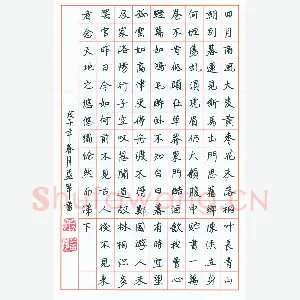 四月南風大麥黄枣花未落桐叶長青山
朝别暮還見嘶馬出門思舊鄉陳侯立身
何坦蕩虬鬚虎眉仍大顙腹中貯書一萬
卷不肯低頭在草莽東門酤酒飲我曹心
輕如鴻毛醉卧不知白日暮有時空望
孤雲如高津吏停舟渡不得鄭國遊人未
及家洛陽行子空嘆息聞道故林相識多
罷官昨日今如何前不見古人後不見来
者念天地之悠悠獨愴然而涕下
春月